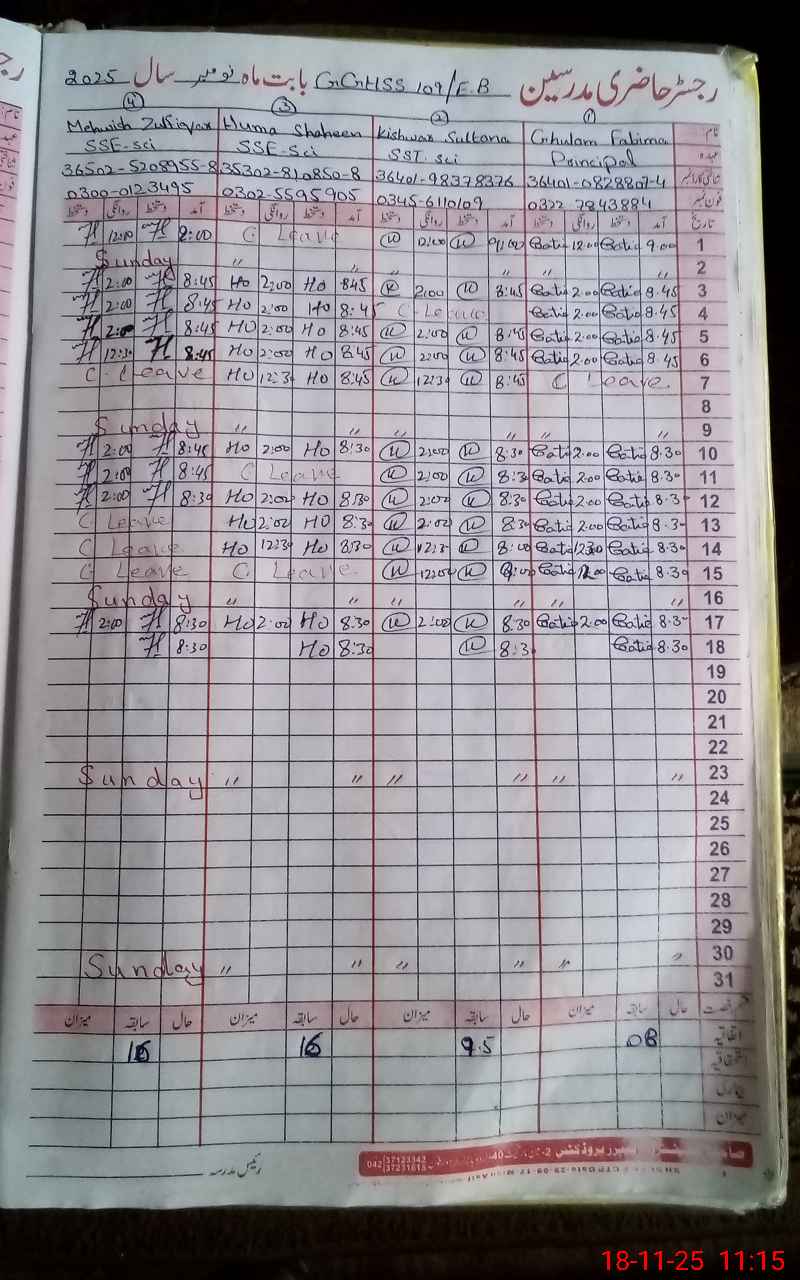 رجسٹر حاضری مدرسین GGHSS 109/E.B بابت ماہ نومبر سال 2025
① ② ③ ④
نام Ghulam Fatima Kishwar Sultana Huma Shaheen Mehwish Zulfiqar
عہدہ Principal SST. sci SSE-Sci SSE-sci
شناختی کارڈ نمبر 36401-0828807-4 36401-98378376 35302-810850-8 36502-5208955-8
فون نمبر 0322 7843884 0345-6110109 0302-5595905 0300-0123495
تاریخ آمد دستخط روانگی دستخط آمد دستخط روانگی دستخط آمد دستخط روانگی دستخط آمد دستخط روانگی دستخط
1 9.00 12.00 9:00 12:00 C Leave 9:00 12:00
2 Sunday " " " " "
3 8.45 2.00 8:45 2:00 845 Ho 2:00 Ho 8:45 2:00
4 8.45 2.00 C-Leave 8:45 Ho 2:00 Ho 8:45 2:00
5 8.45 2.00 8:45 2:00 8:45 Ho 2:00 Ho 8:45 2:00
6 8.45 2.00 8:45 2:00 8:45 Ho 2:00 Ho 8:45 12:30
7 C Leave. 8:45 12:30 8:45 Ho 12:30 Ho C. Leave
8
9 Sunday " " " " "
10 8.30 2.00 8:30 2:00 8:30 Ho 2:00 Ho 8:45 2:00
11 8.30 2.00 8:30 2:00 C Leave 8:45 2:00
12 8.30 2.00 8:30 2:00 8:30 Ho 2:00 Ho 8:30 2:00
13 8.30 2.00 8:30 2:00 8:30 Ho 2:00 Ho C Leave
14 8.30 12.30 8:00 12:30 8:30 Ho 12:30 Ho C Leave
15 8.30 12.00 9:00 12:00 C Leave. C Leave
16 Sunday " " " " " "
17 8.30 2.00 8:30 2:00 8:30 Ho 2:00 Ho 8:30 2:00
18 8.30 8:30 8:30 Ho 8:30
19
20
21
22
23 Sunday " " " " " "
24
25
26
27
28
29
30 Sunday " " " " " "
31
قسم رخصت حال سابقہ میزان حال سابقہ میزان حال سابقہ میزان حال سابقہ میزان
اتفاقیہ 08 9.5 16 16
بیماری
میزان
رئیس مدرسہ
042 37123342
37231615
18-11-25 11:15